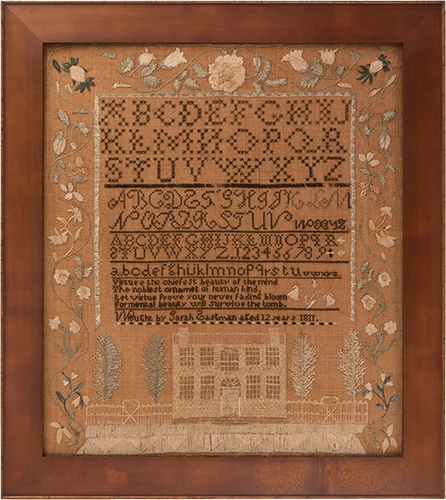 ABCDEFGHIJ
KLMNOPQR
STUVWXYZ
ABCDEFGHIJKLM
NOPQRSTUV WXYZ
ABCDEFGHIJKLMNOPQR
STUVWXYZ 123456789
abcdefghijklmnopqrstuvwxyz
Virtues the chiefest beauty of the mind
The noblest ornament of human kind
Let virtue prove your never fading bloom
For mental beauty will survive the tomb.
Wrought by Sarah Eastman aged 12 years 1811.